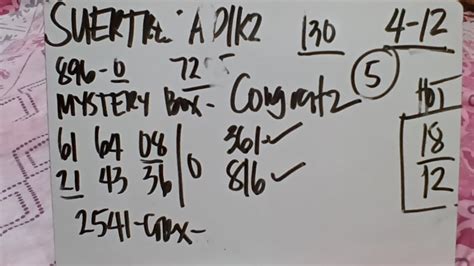 SUERTRES ADIK2 130 4-12
896-0 725 5
MYSTERY BOX- Congratz HOT
61 64 08 0 361✓ 18
21 43 36 816✓ 12
2541-